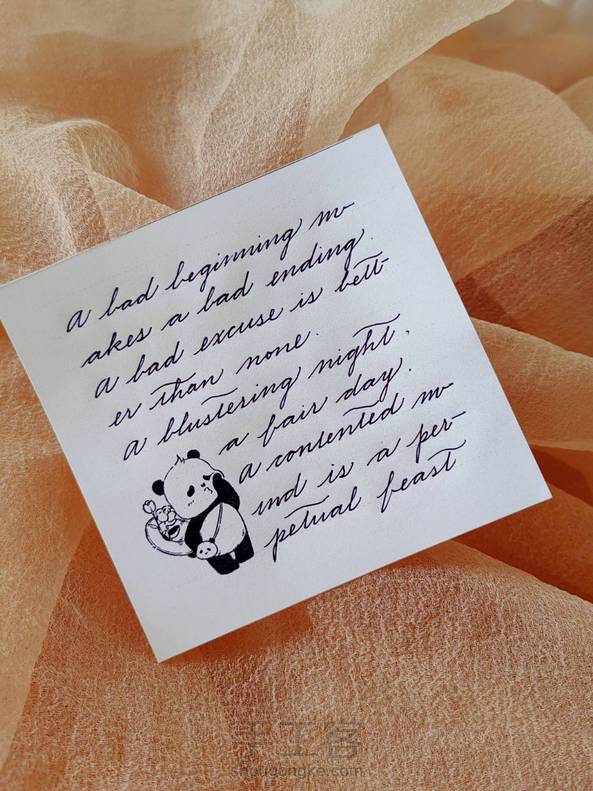 a bad beginning m-
akes a bad ending.
a bad excuse is bett-
er than none.
a blustering night,
a fair day.
a contented m-
ind is a per-
petual feast
手工客
shougongke.com